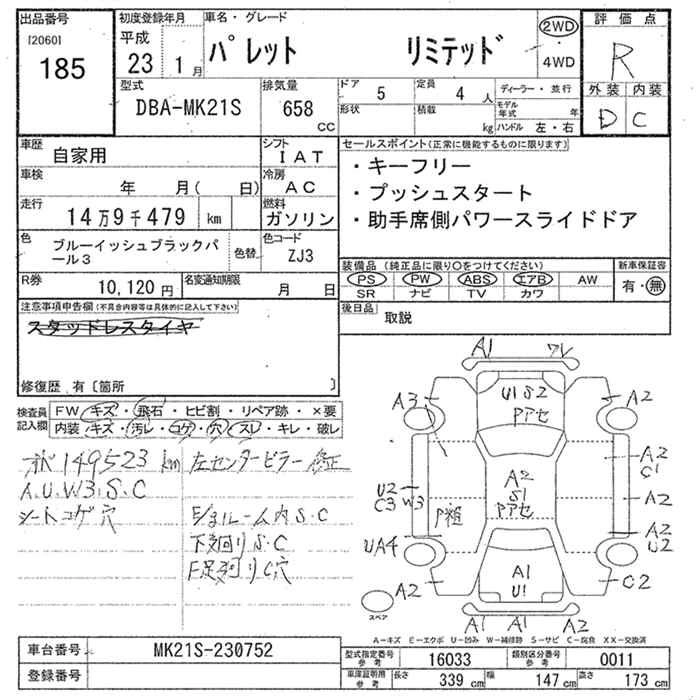 出品番号
[2060]
185
初度登録年月
平成
23 1月
車名・グレード
パレット リミテッド
2WD
・
4WD
評価点
R
外装 内装
D C
型式
DBA-MK21S
排気量
658
cc
ドア 5
形状
定員 4 人
積載 kg
ディーラー・並行
モデル年式 年
ハンドル 左・右
車歴
自家用
シフト
IAT
車検
年 月( 日)
冷房
AC
走行
14万9千479 km
燃料
ガソリン
色
ブルーイッシュブラックパール3
色替
色コード
ZJ3
R券
10,120円
名変通知期限
月 日
セールスポイント(正常に機能するものに限ります)
・キーフリー
・プッシュスタート
・助手席側パワースライドドア
装備品 (純正品に限り○をつけてください)
PS PW ABS エアB AW
SR ナビ TV カワ
新車保証書
有・無
後日品
取説
注意事項申告欄(不具合内容等は具体的に記入して下さい)
スタッドレスタイヤ
修復歴 有〔箇所 〕
検査員記入欄
FW キズ・飛石・ヒビ割・リペア跡・×要
内装・キズ・汚レ・コゲ・穴・スレ・キレ・破レ
149523 km 左センターピラー修正
A.U.W3.S.C
シートコゲ穴
ルーム内S.C
下廻りS.C
F足廻りC穴
A1
U1 S2
A3
A2
A2
S1
A2
C1
U2
C3 W3
A2
A2
U2
UA4
A2
A1
U1
C2
A1 A1 A2
スペア
A-キズ E-エクボ U-凹み W-補修跡 S-サビ C-腐食 XX-交換済
車台番号
MK21S-230752
登録番号
型式指定番号参考
16033
類別区分番号参考
0011
車庫証明用参考
長さ 339 cm
幅 147 cm
高さ 173 cm